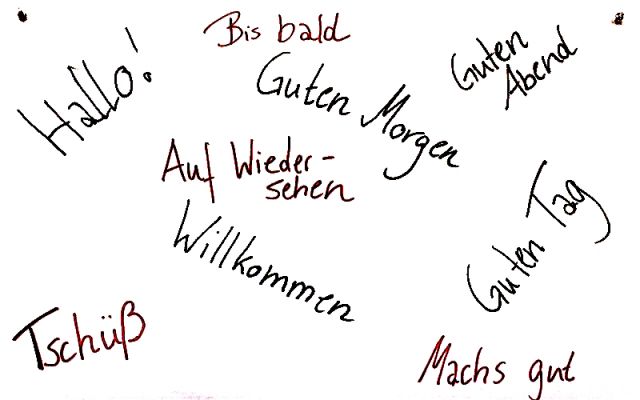 Hallo!
Bis bald
Guten Morgen
Guten
Abend
Auf Wieder-
sehen
Willkommen
Guten Tag
Tschüß
Machs gut